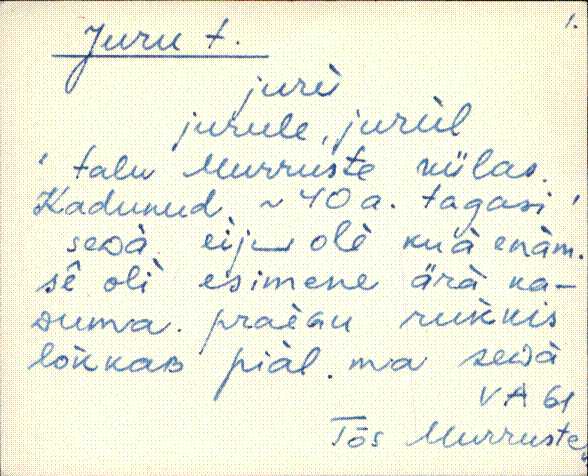 1.
Juru t.
jurè
jurule, jurùl
' talu Murruste külas.
Kadunud ~ 40 a. tagasi '
sedà eij olè kuà enàm.
sê olì esimene ärà ka-
duma. praègu rukkis
lokkaB piàl. ma sedà
VA 61
Tõs Murruste